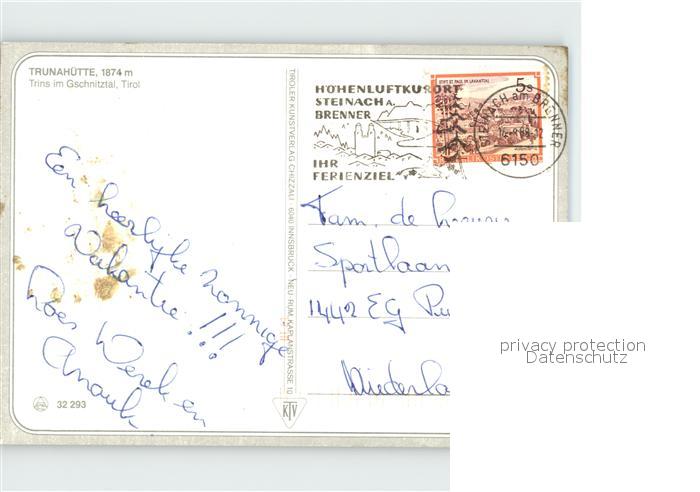 TRUNAHÜTTE, 1874 m
Trins im Gschnitztal, Tirol
Een heerlijke zonnige
vakantie!!!
Groes Derek en
Anouk
32 293
TIROLER KUNSTVERLAG CHIZZALI · 6040 INNSBRUCK · NEU-RUM, KAPLANSTRASSE 10
KTV
HÖHENLUFTKURORT
STEINACH A.
BRENNER
IHR
FERIENZIEL
STIFT ST. PAUL IM LAVANTTAL
5s
STEINACH am BRENNER
6150
Fam. de
Sportlaan
1442 EG Pu
Niederla
privacy protection
Datenschutz